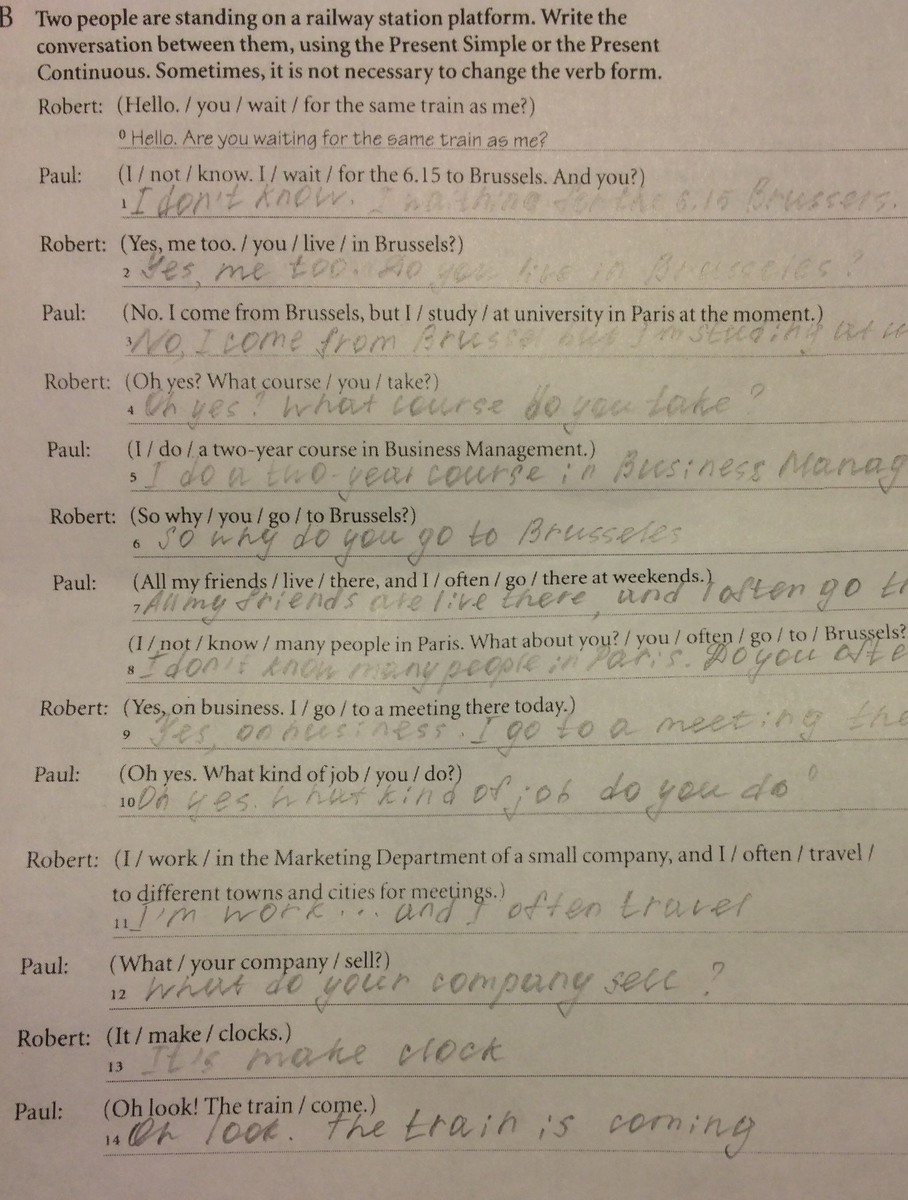 B Two people are standing on a railway station platform. Write the
conversation between them, using the Present Simple or the Present
Continuous. Sometimes, it is not necessary to change the verb form.
Robert: (Hello. / you / wait / for the same train as me?)
0 Hello. Are you waiting for the same train as me?
Paul: (I / not / know. I / wait / for the 6.15 to Brussels. And you?)
1 I don't know. I waithing for the 6.15 Brussers.
Robert: (Yes, me too. / you / live / in Brussels?)
2 Yes, me too. Do you live in Brusseles?
Paul: (No. I come from Brussels, but I / study / at university in Paris at the moment.)
3 No, I come from Brussel but I'm studing at u
Robert: (Oh yes? What course / you / take?)
4 Oh yes? What course do you take?
Paul: (I / do / a two-year course in Business Management.)
5 I do a two-year course in Business Manag
Robert: (So why / you / go / to Brussels?)
6 So why do you go to Brusseles
Paul: (All my friends / live / there, and I / often / go / there at weekends.)
7 All my friends are live there, and I often go th
(I / not / know / many people in Paris. What about you? / you / often / go / to / Brussels?
8 I don't know many people in Paris. Do you ofte
Robert: (Yes, on business. I / go / to a meeting there today.)
9 Yes, on business. I go to a meeting the
Paul: (Oh yes. What kind of job / you / do?)
10 Oh yes. What kind of job do you do?
Robert: (I / work / in the Marketing Department of a small company, and I / often / travel /
to different towns and cities for meetings.)
11 I'm work... and I often travel
Paul: (What / your company / sell?)
12 What do your company sell?
Robert: (It / make / clocks.)
13 It's make clock
Paul: (Oh look! The train / come.)
14 Oh look. The train is coming